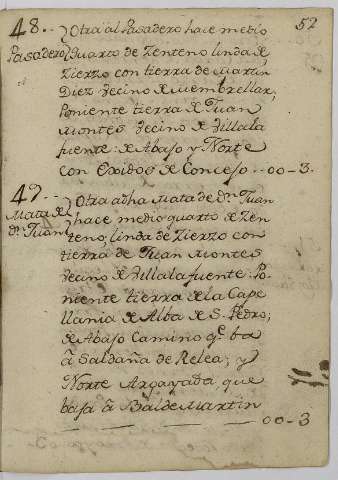 52
48.. Otra al Pasadero hace medio
Pasadero quarto de Zenteno linda de
Zierzo con tierra de Martin
Diez vecino de Membrillar,
Poniente tierra de Juan
Montes vecino de Villala
fuente: de Abajo y Norte
con Exidos de Concejo.. 00-3.
49.. Otra adha Mata de Dn. Juan
Mata de hace medio quarto de Zen
Dn. Juan teno; linda de Zierzo con
tierra de Juan Montes
vecino de Villalafuente: Po
niente tierra de la Cape
llania de Alba de S. Pedro;
de Abajo Camino qe. ba
â Saldaña de Relea; y
Norte Argayada que
baja â Balde Martin
00-3